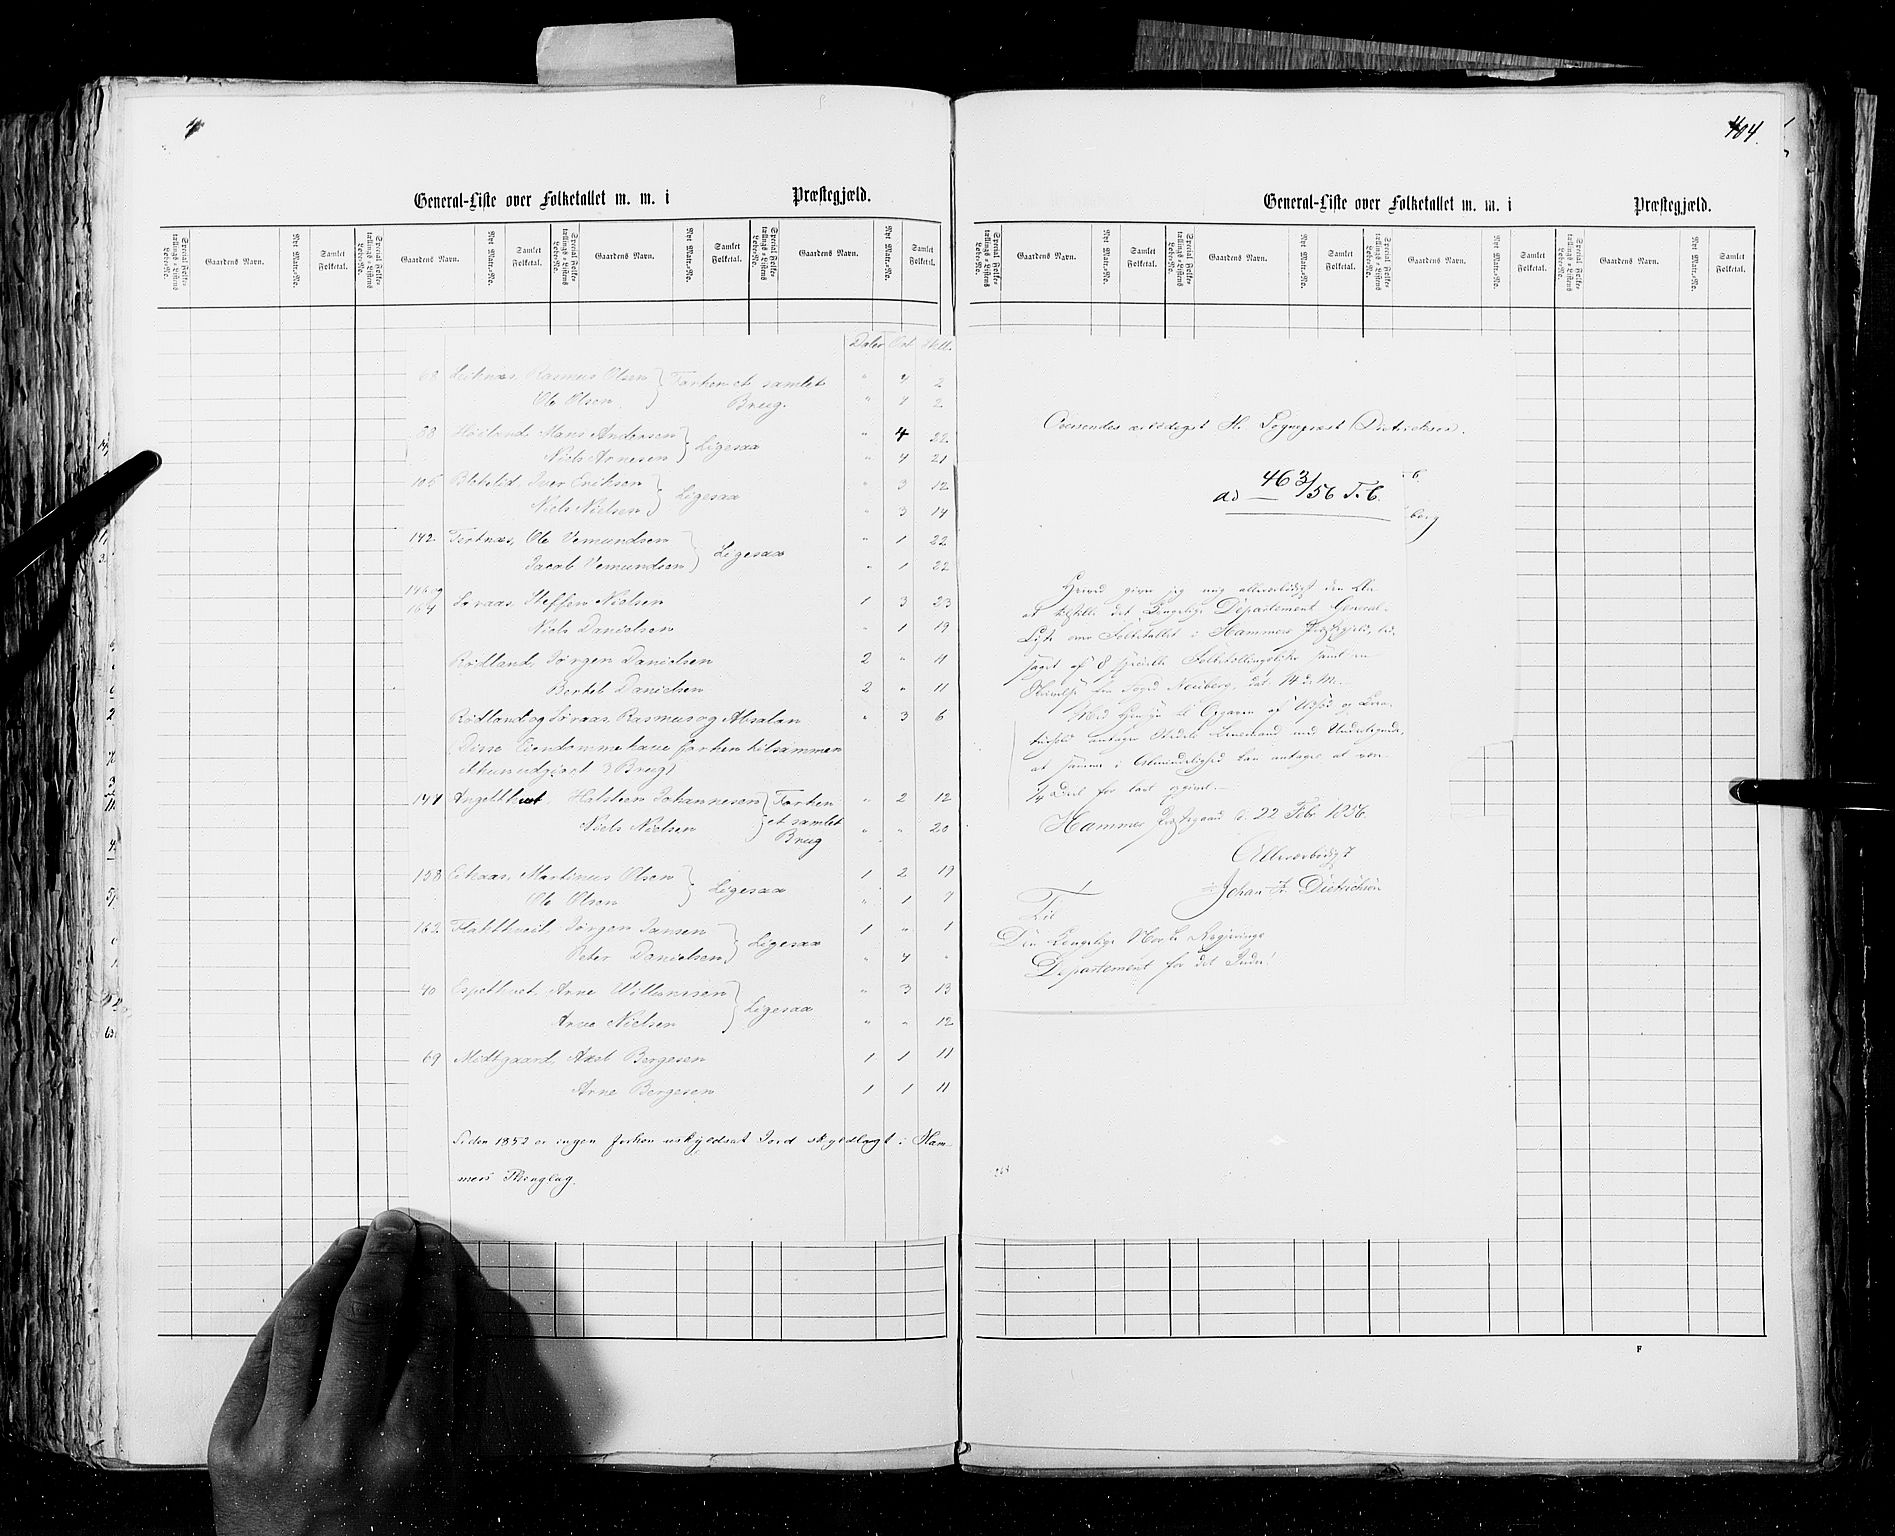 404.
General-Liste over Folketallet m. m. i Præstegjæld.
Special Folketællings-Listens Løbe-No. Gaardens Navn. Nyt Matr.-No. Samlet Folketal. Special Folketællings-Listens Løbe-No. Gaardens Navn. Nyt Matr.-No. Samlet Folketal. Special Folketællings-Listens Løbe-No. Gaardens Navn. Nyt Matr.-No. Samlet Folketal. Special Folketællings-Listens Løbe-No. Gaardens Navn. Nyt Matr.-No. Samlet Folketal.
Daler Ort Skill.
68 Rasmus Olsen } Forhen et samlet " 4 2
Ole Olsen } Brug. " 4 2
88 Høiland, Mons Andersen } Ligesaa " 4 22
Niels Arnesen " 4 21
106 Iver Eriksen } Ligesaa " 3 12
Niels Nielsen " 3 14
142 Tertnæs, Ole Vemundsen } Ligesaa " 1 22
Jacob Vemundsen " 1 22
146 og
164 Søraas, Steffen Nielsen 1 3 23
Niels Danielsen " 1 19
Rødland, Jørgen Danielsen 2 " 11
Bertel Danielsen 2 " 11
Rødland og Søraas, Rasmus og Absalon " 3 6
(Disse Eiendomme have forhen tilsammen
kun udgjort 3 Brug)
Holsteen Johannesen } Forhen " 2 12
Niels Nielsen } et samlet " " 20
Brug
158 Eikaas, Martinus Olsen } Ligesaa 1 2 19
Ole Olsen " 1 9
162 Jørgen Jansen } Ligesaa 1 " 1
Peter Danielsen " 4 "
40 Arne Willumsen } Ligesaa " 3 13
Arne Nielsen " " 12
69 Midtgaard, Axel Bergesen 1 1 11
Arne Bergesen 1 1 11
Siden 1852 er ingen forhen uskyldsat Jord skyldlagt i Ham-
mers Thinglag.
General-Liste over Folketallet m. m. i Præstegjæld.
Special Folketællings-Listens Løbe-No. Gaardens Navn. Nyt Matr.-No. Samlet Folketal. Special Folketællings-Listens Løbe-No. Gaardens Navn. Nyt Matr.-No. Samlet Folketal. Special Folketællings-Listens Løbe-No. Gaardens Navn. Nyt Matr.-No. Samlet Folketal. Special Folketællings-Listens Løbe-No. Gaardens Navn. Nyt Matr.-No. Samlet Folketal.
Oversendes ærbødigst Hr. Sognepræst Dietrichson.
ad 463/56 T. C.
berg
Herved giver jeg mig allerærbødigst den Ære
at tilstille det Kongelige Departement General-
Liste over Folketallet i Hammers Præstegjeld, led-
saget af 8 specielle Folketællingslister samt en
Skrivelse fra Foged Neuberg, dat. 14 d. M.
Med Hensyn til Opgaven af Udsæd og Krea-
at samme i Almindelighed kan antages at være
1/4 Deel for lavt opgivet.
Hammers Præstegaard d. 22 Febr. 1856.
Allerærbødigst
Johan F. Dietrichson
Til
Den Kongelige Norske Regjerings
Departement for det Indre!
F